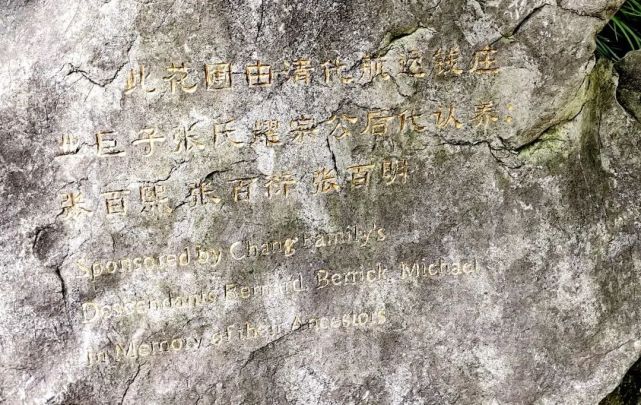 此花圃由清代航运钱庄
业巨子张氏耀宗公后代认养：
张百熙 张百衍 张百明
Sponsored by Chang Family's
Descendants Bernard, Berrick, Michael
in Memory of their Ancestors